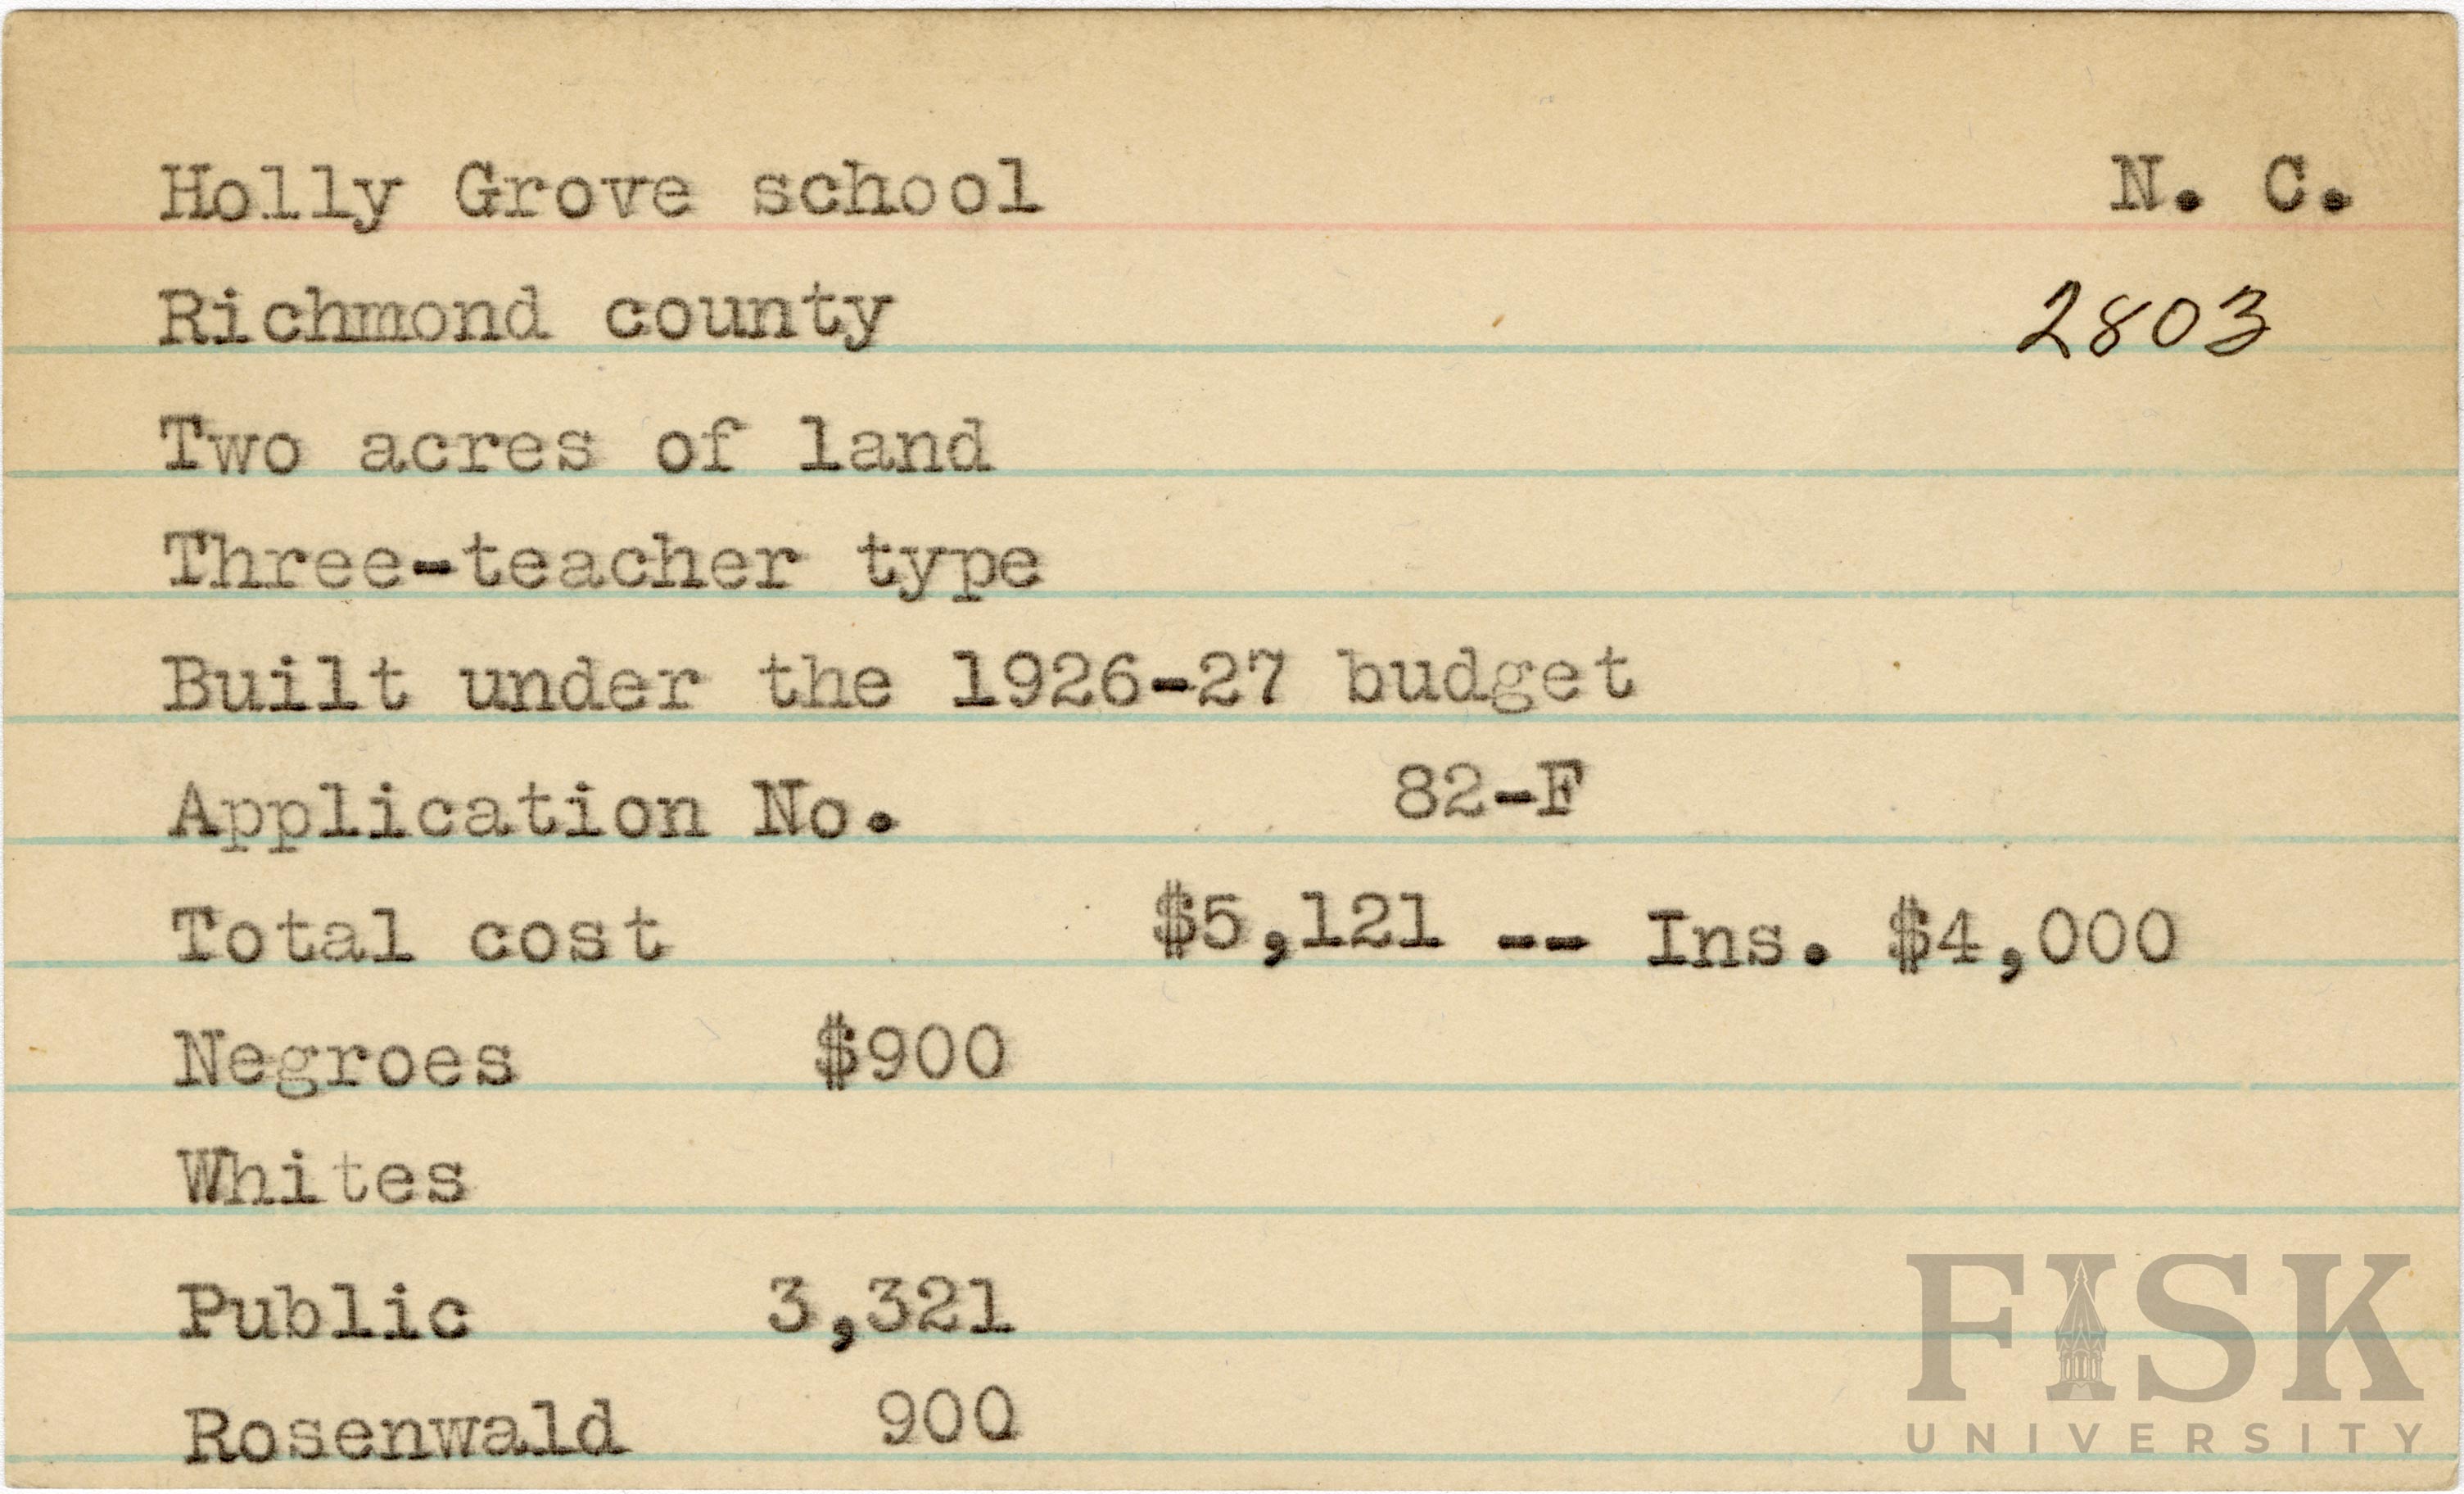 Holly Grove school N. C.
Richmond county 2803
Two acres of land
Three-teacher type
Built under the 1926-27 budget
Application No. 82-F
Total cost $5,121 -- Ins. $4,000
Negroes $900
Whites
Public 3,321
Rosenwald 900
FISK
UNIVERSITY